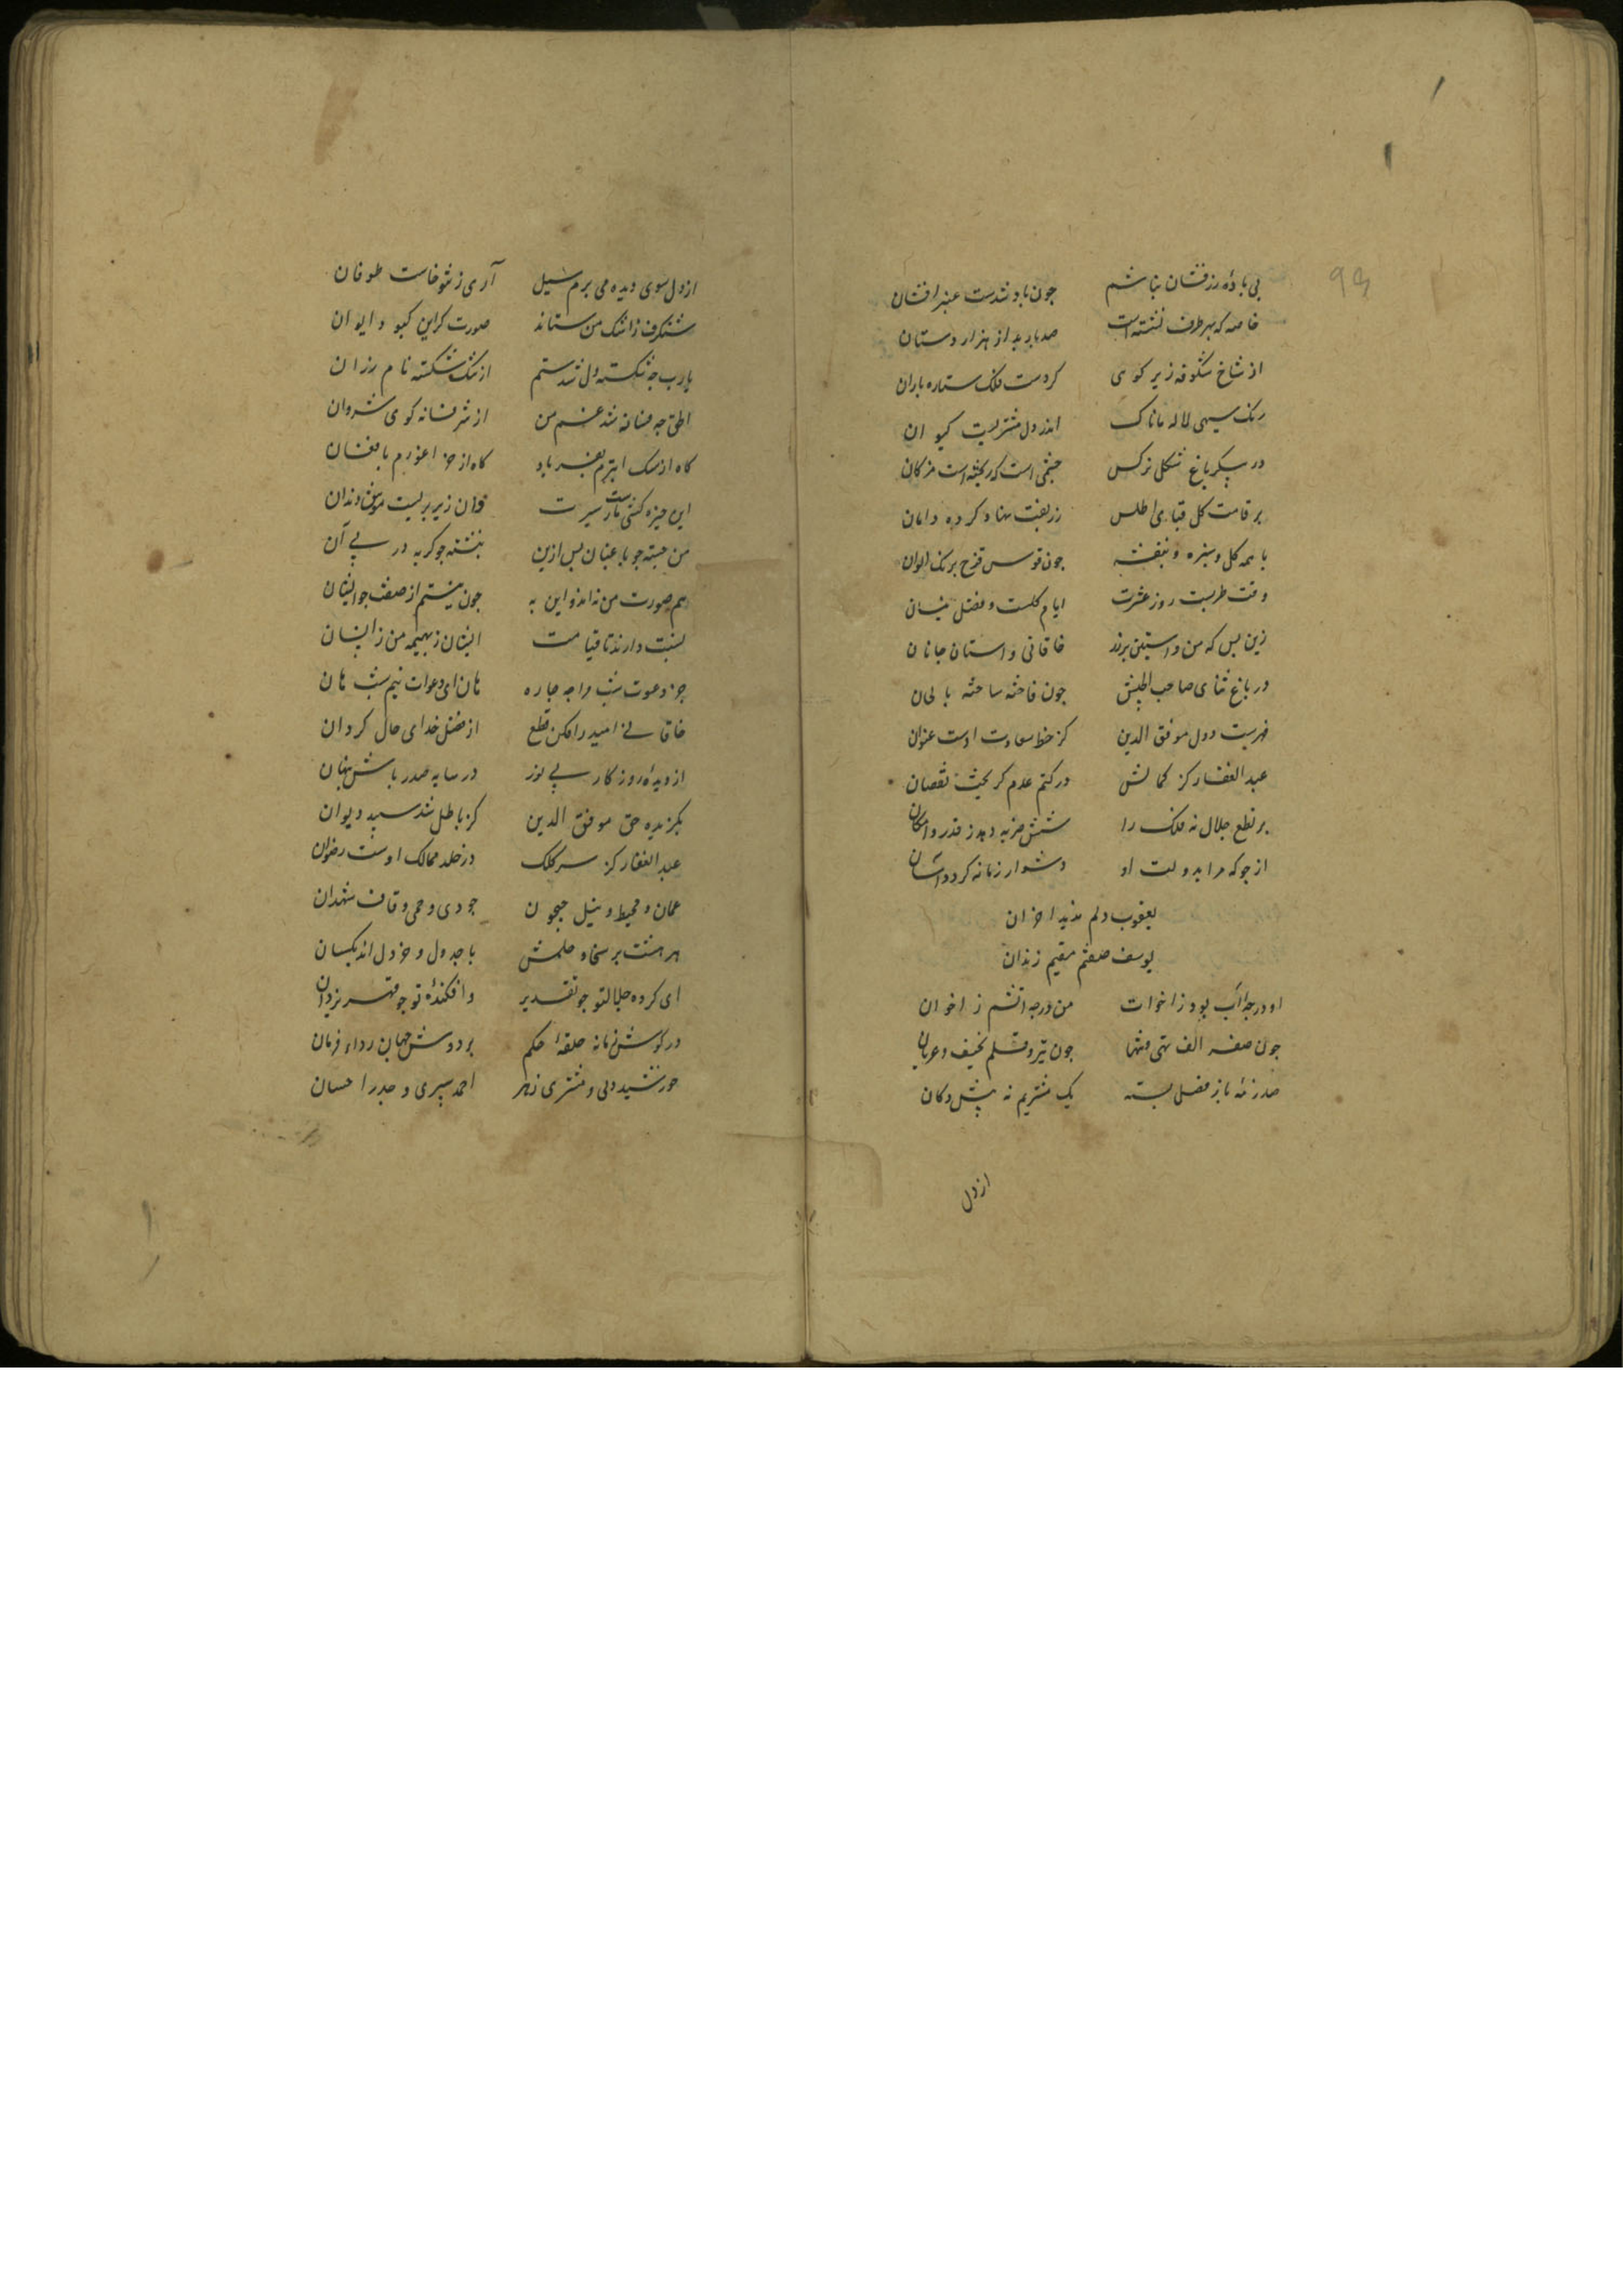 بی باده زرفشان نباشم جون باد شدست عنبرافشان
خاصه که بهر طرف نشسته است صد باربد از هزار دستان
از شاخ شکوفه زیر کوی کردست فلک ستاره باران
رنک سیهی لاله ماناک اندر دل مشتریست کیوان
در پیکر باغ شکل نرکس جشمی است که ریخته است مژکان
بر قامت کل قبای اطلس زربفت نهاد کرده دامان
با همه کل و سبزه و بنفشه جون قوس قزح برنک الوان
وقت طربست روز عشرت ایام کلست و فصل نیسان
زین بس که من و استین برزد خاقانی و استان جانان
در باغ ثنای صاحب الجیش جون فاخته ساخته بالحان
فهرست دول موفق الدین کز خط سعادت اوست عنوان
عبد الغفار کز کمالش در کتم عدم کریخت نقصان
بر نطع جلال نه فلک را شش ضربه دهد ز قدر و امکان
از جو که مرا بدولت او دشوار زمانه کردد اسان
یعقوب دلم ندید احزان
یوسف صفتم مقیم زندان
او در جه اب بود ز اخوات من در جه اتشم ز اخوان
جون صفر الف تهی و تنها جون تیر و قلم نحیف و عریان
صد رزمه باز فضل بسته یک مشتریم نه بیش دکان
از دل
از دل سوی دیده می برم سیل آری ز تنو خاست طوفان
شنکرف ز اشک من ستاند صورت کر این کبو د ایوان
یارب جه شکسته دل شدستم از ننک شکسته نام رزان
الحق جه فسانه شد غم من از شر فسانه کوی شروان
کاه از سک ابترم بفریاد کاه از خر اعورم بافغان
این حیزه کشی مار سیرت وان زیر بریست موش دندان
من جسته جو باد عنان بس ازین بنشسته جو کربه در پی آن
هم صورت من نه اند و این به جون نیستم از صفت جو ایشان
نسبت دارند تا قیامت ایشان ز بهیمه من ز انسان
جز دعوت شب مرا جه جاره هان ای دعوات نیم شب هان
خاقانی امید را مکن قطع از فضل خدای حال کردان
از دیده روزکار بی نور در سایه صدر باش پنهان
بکزیده حق موفق الدین کز باطل شد سپید دیوان
عبد الغفار کز سر کلک در خلد ممالک اوست رضوان
عمان و محیط و نیل جیحون جودی و حری و قاف شهدان
هر هشت بر سخا و حلمش با جدول و خردل اند یکسان
ای کرده جلال تو جو تقدیر وافکنده تو جو قهر یزدان
در کوش زمانه حلقه حکم بر دوش جهان رداء فرمان
خورشید دلی و مشتری زهد احمد سیری و حیدر احسان